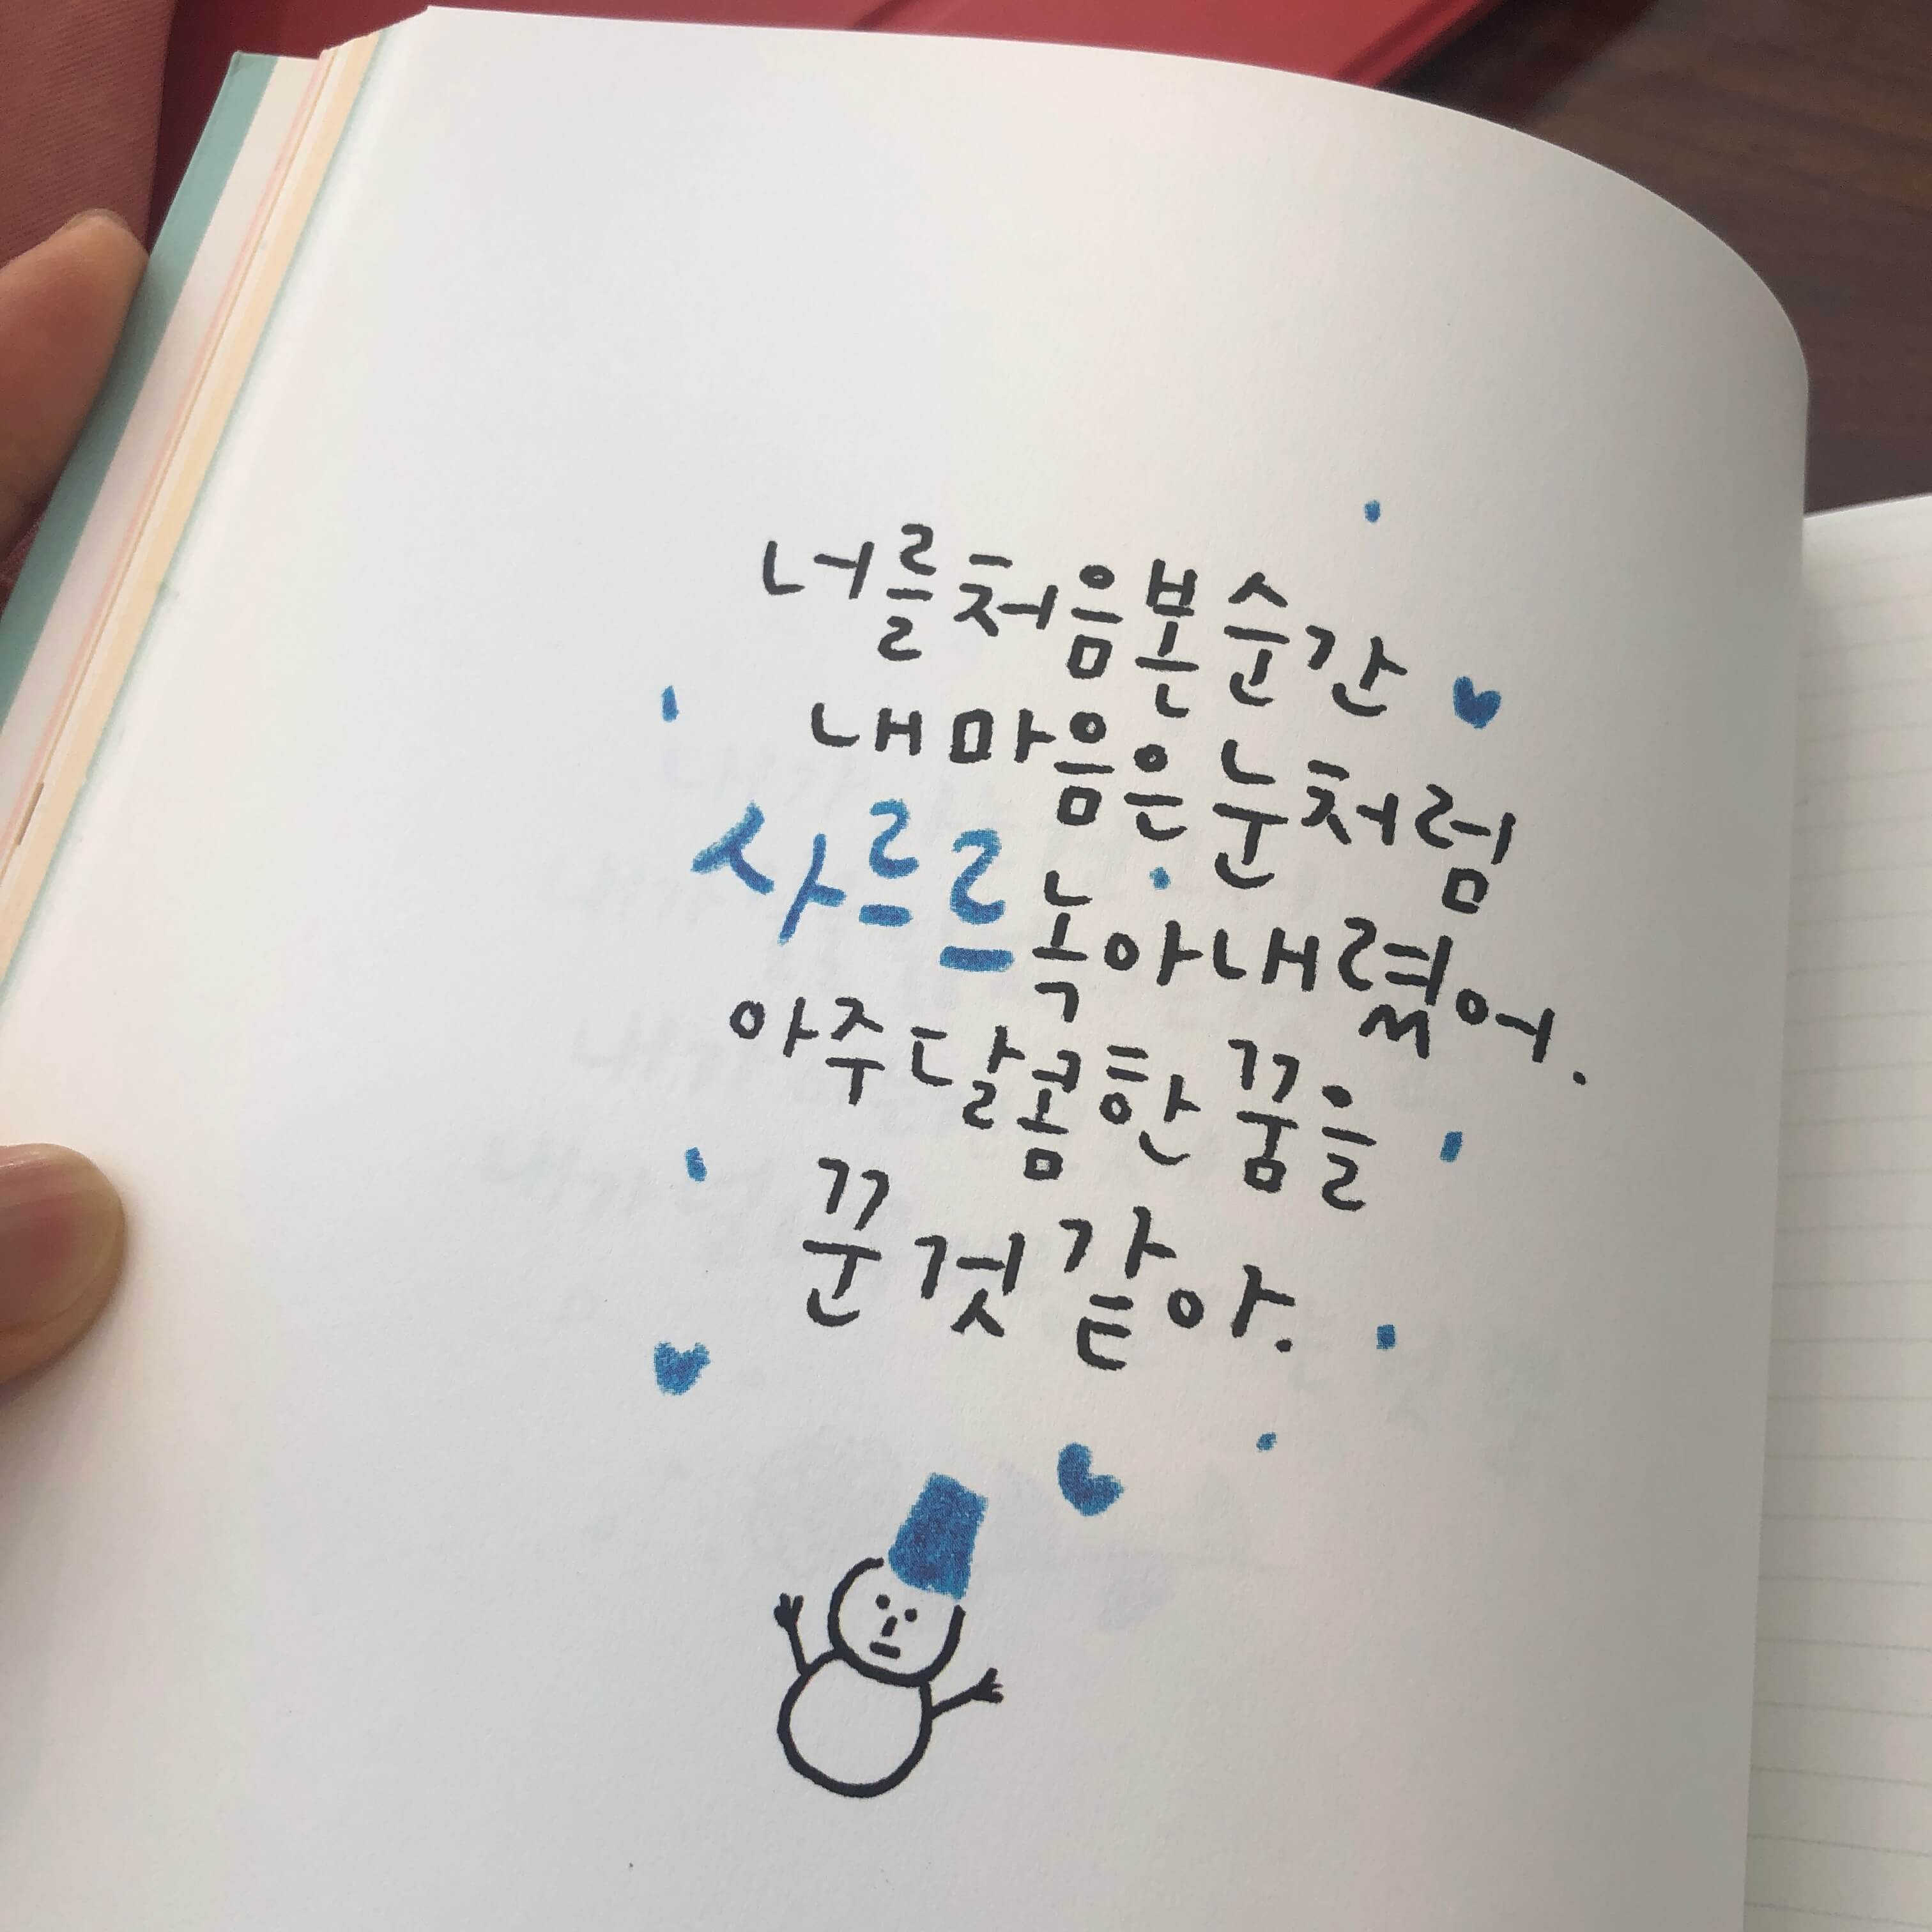 너를 처음 본 순간
내 마음은 눈처럼
사르르 녹아내렸어.
아주 달콤한 꿈을
꾼 것 같아.